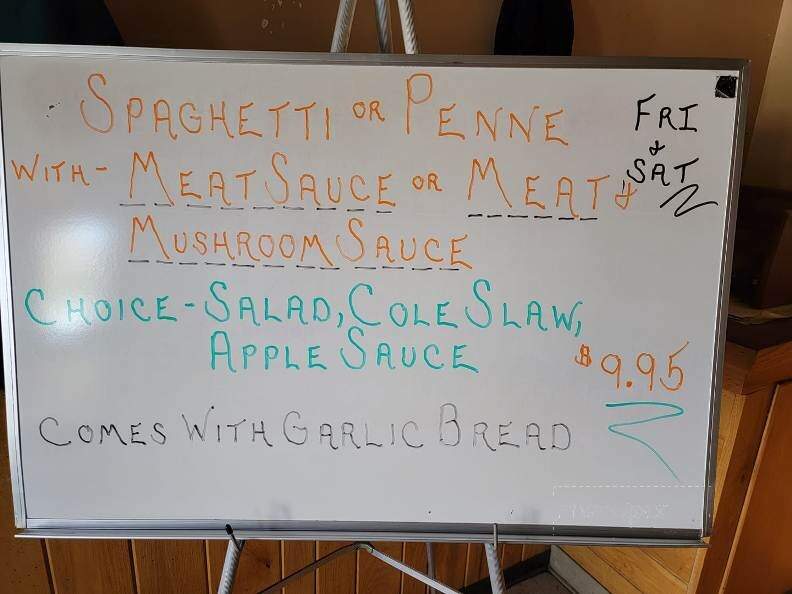 SPAGHETTI OR PENNE
FRI
& SAT
WITH- MEAT SAUCE OR MEAT &
MUSHROOM SAUCE
CHOICE-SALAD, COLE SLAW,
APPLE SAUCE
$9.95
COMES WITH GARLIC BREAD